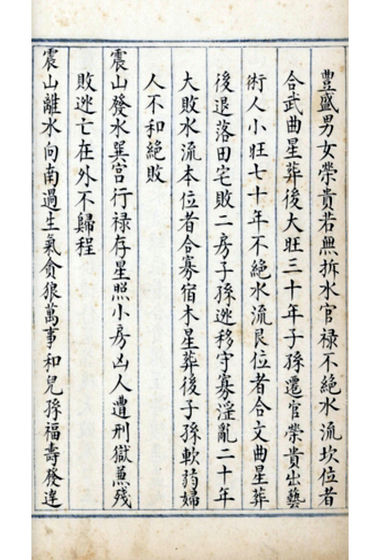 豐盛男女榮貴若無拆水官禄不絕水流坎位者
合武曲星葬後大旺三十年子孫遷官榮貴出藝
術人小旺七十年不絕水流艮位者合文曲星葬
後退落田宅敗二房子孫逃移守寡滛亂二十年
大敗水流本位者合寡宿木星葬後子孫軟药婦
人不和絕敗
震山發水巽宮行禄存星照小房凶人遭刑獄兼殘
敗逃亡在外不歸程
震山離水向南過生氣貪狼萬事和兒孫福壽發達